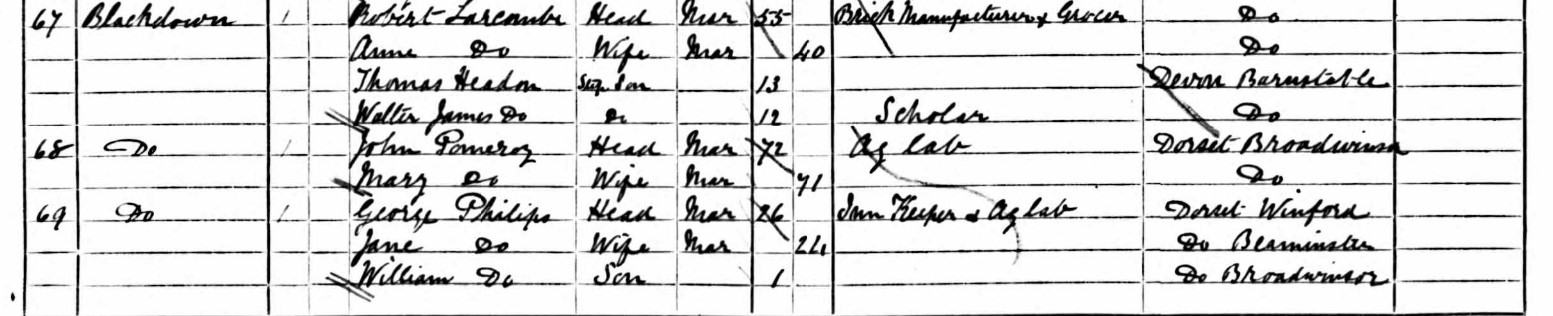 67 Blackdown 1 Robert Larcombe Head Mar 55 Brick Manufacturer & Grocer Do
Anne Do Wife Mar 40 Do
Thomas Headon Step Son 13 Devon Barnstable
Walter James Do Do 12 Scholar Do
68 Do 1 John Pomeroy Head Mar 72 Ag lab Dorset Broadwinsor
Mary Do Wife Mar 71 Do
69 Do 1 George Philips Head Mar 26 Inn Keeper & Ag lab Dorset Winford
Jane Do Wife Mar Do Beaminster
William Do Son 1 Do Broadwinsor